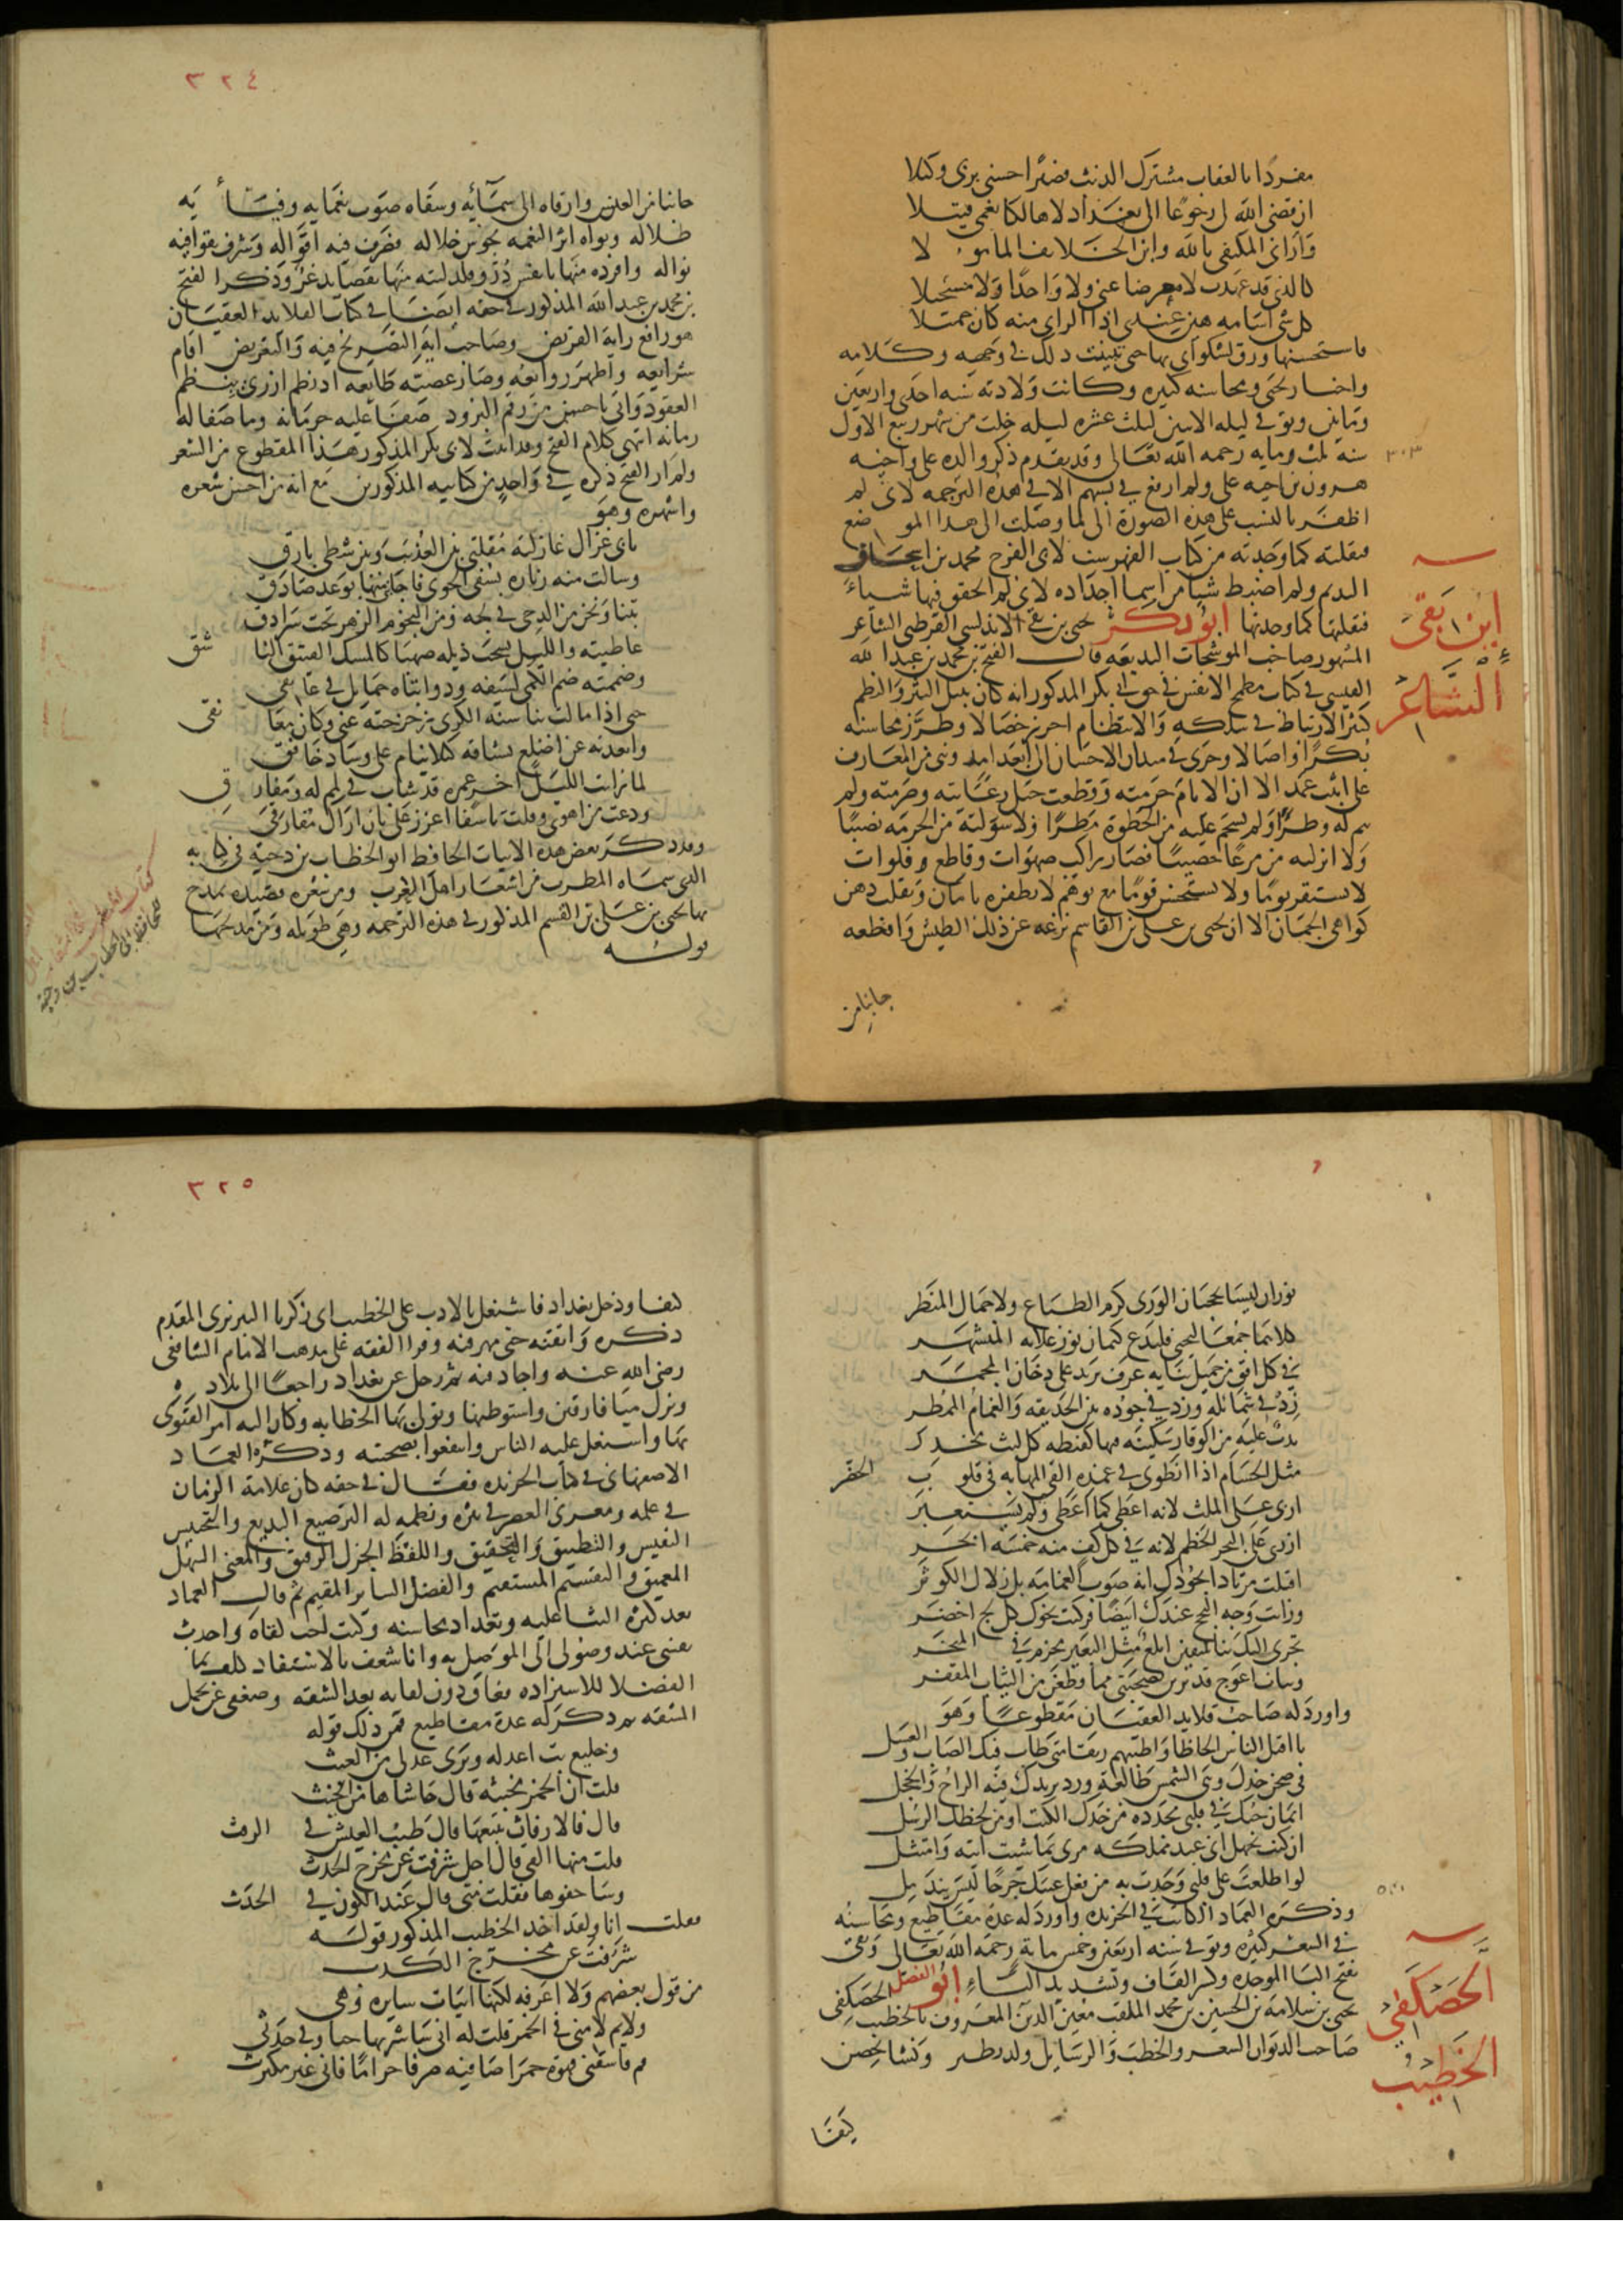 مفردا بالعقاب مشترك الذنب فصبرا حسبي بربي وكيلا
ان قضى الله لي رجوعا الى بغداد لا هالكا بغمي قتيلا
وأراني المكتفي بالله وابن الخلايف المامولا
كالذي قد عهدت لا معرضا عني ولا واحدا ولا مستحيلا
كل شي اسامه هين عندي اذا الراي منه كان جميلا
فاستحسنها ورق لشكواي بها حتى تبينت ذلك في وجهه وكلامه
واخبار يحيى ومحاسنه كثيره وكانت ولادته سنه احدى واربعين
ومايتين وتوفي ليله الاثنين لثلث عشره ليله خلت من شهر ربيع الاول
سنه ثلث ومايه رحمه الله تعالى وقد تقدم ذكر والده علي واخيه
٣٠٣
هرون وابن اخيه علي ولم ارفع في نسبهم الا في هذه الترجمه لاني لم
اظفر بالنسب على هذه الصورة الى لما وصلت الى هذا الموضع
فنقلته كما وجدته من كتاب الفهرست لابي الفرج محمد بن اسحاق
النديم ولم اضبط شيا من اسما اجداده لاني لم اتحقق فيها شياء
فنقلتها كما وجدتها ابو بكر يحيى بن بقي الاندلسي القرطبي الشاعر
ابن بقى
الشاعر
المشهور صاحب الموشحات البديعه قال الفتح بن محمد بن عبد الله
القيسي في كتاب مطمح الانفس في حق ابي بكر المذكور انه كان نبيل النثر والنظم
كثير الارتباط في سلكه والانتظام احرز خصالا وطرز محاسنه
بكرا واصالا وجرى في ميدان الاحسان الى ابعد امد وبنى من المعارف
على اثبت عمد الا ان الايام حرمته وقطعت حبل رعايته وصرمته ولم
يتم له وطرا ولم يسجم عليه من الحظوة مطرا ولا سولته من الحرمه نصيبا
ولا انزلته من مرعاها خصيبا فصار راكب صهوات وقاطع فلوات
لا يستقر يوما ولا يستحسن قوما مع توهم لا يظفره بامان وتقلب ذهن
كواهي الجمان الا ان يحيى بن علي بن القاسم نزعه عن ذلك الطيش واقطعه
جانبا من
٣٢٤
جانبا من العيش وارقاه الى سمائه وسقاه صوب نعمايه وفيأه
ظلاله وبواه اثر النعمه يجوس خلاله فصرف فيه اقواله وشرف بقوافيه
نواله وافرده منها بانفس در وقلد لبته منها بقصايد غر وذكر الفتح
بن محمد بن عبد الله المذكور في حقه ايضا في كتاب القلايد العقيان
هو رافع راية القريض وصاحب اية التصريح فيه والتعريض اقام
شرايعه واظهر روايعه وصار عصيه طايعه اذا نظم ازرى بنظم
العقود واتى باحسن من رقم البرود ضفا عليه حرمانه وما صفا له
زمانه انتهى كلام الفتح وقد اثبت لابي بكر المذكور هذا المقطوع من الشعر
ولم ار الفتح ذكره في واحد من كتابيه المذكورين مع انه من احسن شعره
واشهره وهو
بابي غزال غازلته مقلتي بين العذيب وبين شطي بارق
وسالت منه زيارة تشفي الجوى فاجابني منها بوعد صادق
بتنا ونحن من الدجى في لجه ومن النجوم الزهر تحت سرادق
عاطيته والليل يسحب ذيله صهبا كالمسك الفتيق الناشق
وضممته ضم الكمي لسيفه وذوابتاه حمايل في عاتقي
حتى اذا مالت به سنه الكرى زحزحته عني وكان معانقي
وابعدته عن اضلع تشتاقه كيلا ينام على وساد خافق
لما رايت الليل اخر عمره قد شاب في لمم له ومفارق
ودعت من اهوى وقلت تاسفا اعزز علي بان اراك مفارقي
وقد ذكر بعض هذه الابيات الحافظ ابو الخطاب بن دحية في كتابه
الذي سماه المطرب من اشعار اهل المغرب ومن شعره قصيده يمدح
بها يحيى بن علي بن القسم المذكور في هذه الترجمه وهي طويله ومن مديحها
قوله
كتاب المطرب
للحافظ ابي الخطاب بن دحية
نوران ليسا يحجبان الورى كرم الطباع ولا جمال المنظر
كلاهما جمعا ليحيى فليدع كتمان نور علايه المتشهر
في كل افق من جميل ثنايه عرف يزيد على دخان المجمر
زد في شمايله وزد في جوده بين الحديقه والغمام الممطر
بدت عليه من الوقار سكينه فيها كفطنه كل ليث مخدر
مثل الحسام اذا انطوى في غمده القى المهابه في قلوب الحضر
اربى على الملث لانه اعطى كما اعطى ولم يستعبر
ازرى على البحر الخضم لانه في كل كف منه خمسه ابحر
اقبلت مرتادا لجودك انه صوب الغمامه بل زلال الكوثر
ورايت وجه النجح عندك ابيضا فركبت نحوك كل لج اخضر
تجري اليك بنا سفين اتلع مثل البعير مخزم في المنخر
وبنات اعوج قد برين صحبتي مما قطعن من اليباب المقفر
واورد له صاحب قلايد العقيان مقطوعا وهو
يا اقتل الناس الحاظا واطيبهم ريقا متى طاب فيك الصاب والعسل
في صحن خدك وهي الشمس طالعة ورد يزيدك فيه الراح والخجل
ايمان حبك في قلبي مجدده من خدك الكتب او من لحظك الرسل
ان كنت تجهل اني عبد مملكه مرني بما شيت اتيه وامتثل
لو اطلعت على قلبي وجدت به من فعل عينيك جرحا ليس يندمل
وذكره العماد الكاتب في الخريده واورد له عدة مقاطيع ومحاسنه
في الشعر كثيره وتوفي سنه اربعين وخمس ماية رحمه الله تعالى وبقي
بفتح البا الموحده وكسر القاف وتشديد الياء ابو الفضل الحصكفي
يحيى بن سلامة بن الحسين بن محمد الملقب معين الدين المعروف بالخطيب
صاحب الديوان الشعر والخطب والرسايل ولد بطنزه ونشا بحصن
٥٤٠
الحصكفي
الخطيب
كيفا
٣٢٥
كيفا ودخل بغداد فاشتغل بالادب على الخطيب ابي زكريا التبريزي المقدم
ذكره واتقنه حتى مهر فيه وقرا الفقه على مذهب الامام الشافعي
رضي الله عنه واجاد فيه ثم رحل عن بغداد راجعا الى بلاده
ونزل ميافارقين واستوطنها وتولى بها الخطابه وكان اليه امر الفتوى
بها واشتغل عليه الناس وانتفعوا بصحبته وذكره العماد
الاصفهاني في كتاب الخريده فقال في حقه كان علامة الزمان
في علمه ومعري العصر في نثره ونظمه له الترصيع البديع والتجنيس
النفيس والتطبيق والتحقيق واللفظ الجزل الرقيق والمعنى السهل
العميق والتقسيم المستقيم والفضل الساير المقيم ثم قال العماد
بعد كثرة الثنا عليه وتعداد محاسنه وكنت احب لقاه واحدث
نفسي عند وصولي الى الموصل به وانا شغف بالاستفاد كلف بمجالسة
الفضلا للاستزاده فعاق دون لقايه بعد الشقه وضعفي عن تحمل
المشقه ثم ذكر له عدة مقاطيع فمن ذلك قوله
وخليع بت اعذله ويرى عذلي من العبث
قلت ان الخمر مخبثه قال حاشاها من الخبث
قال فالارفاث تتبعها قال طيب العيش في الرفث
قلت منها القي قال اجل شرفت عن مخرج الحدث
وساجفوها فقلت متى قال عند الكون في الجدث
فقلت انا ولقد اخذ الخطيب المذكور قوله
شرفت عن مخرج الحدث
من قول بعضهم ولا اعرفه لكنها ابيات سايره وهي
ولايم لامني في الخمر قلت له اني ساشربها حيا وفي جدثي
قم فاسقني قهوة حمرا صافيه صرفا حراما فاني غير مكترث